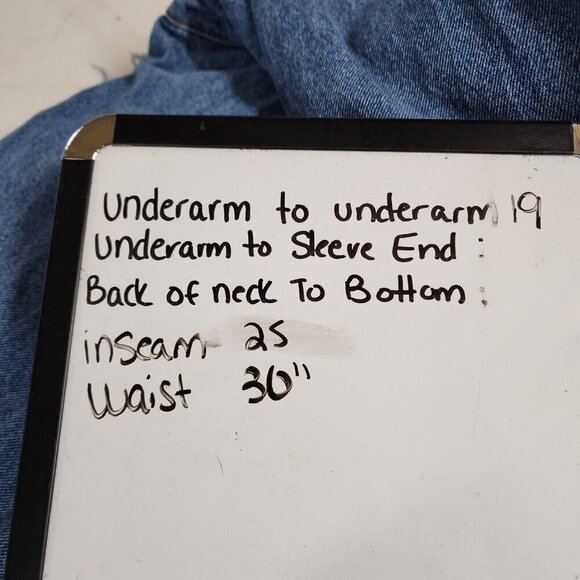 underarm to underarm 19
underarm to Sleeve End :
Back of neck To Bottom :
inseam 25
Waist 30"